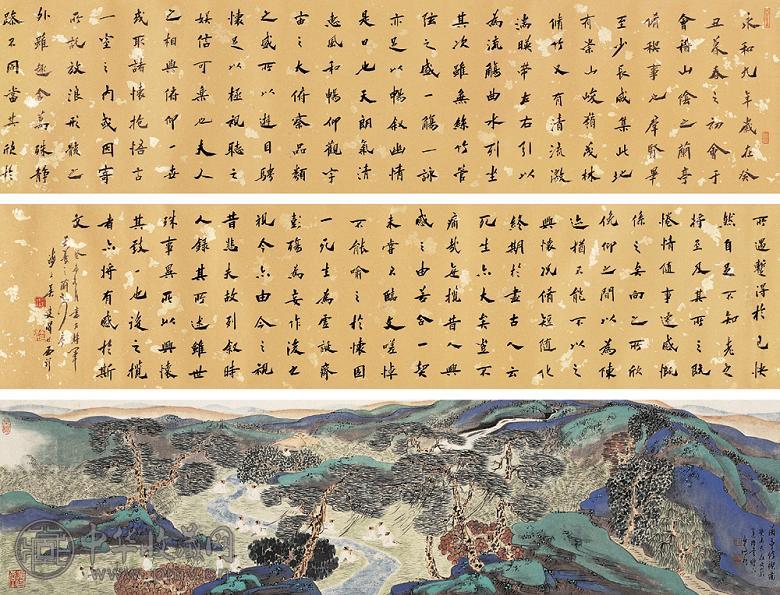 永和九年歲在癸
丑暮春之初會于
會稽山陰之蘭亭
脩稧事也羣賢畢
至少長咸集此地
有崇山峻嶺茂林
脩竹又有清流激
湍暎帶左右引以
為流觴曲水列坐
其次雖無絲竹管
弦之盛一觴一詠
亦足以暢敘幽情
是日也天朗氣清
惠風和暢仰觀宇
宙之大俯察品類
之盛所以遊目騁
懷足以極視聽之
娛信可樂也夫人
之相與俯仰一世
或取諸懷抱悟言
一室之內或因寄
所託放浪形骸之
外雖趣舍萬殊靜
躁不同當其欣於
所遇暫得於己快
然自足不知老之
將至及其所之既
惓情随事遷感慨
係之矣向之所欣
俛仰之間以為陳
迹猶不能不以之
興懷況脩短随化
終期於盡古人云
死生亦大矣豈不
痛哉每攬昔人興
感之由若合一契
未嘗不臨文嗟悼
不能喻之於懷固
一死生為虛誕齊
彭殤為妄作後之
視今亦由今之視
昔悲夫故列敘時
人錄其所述雖世
殊事異所以興懷
其致一也後之攬
者亦將有感於斯
文
中华收藏网